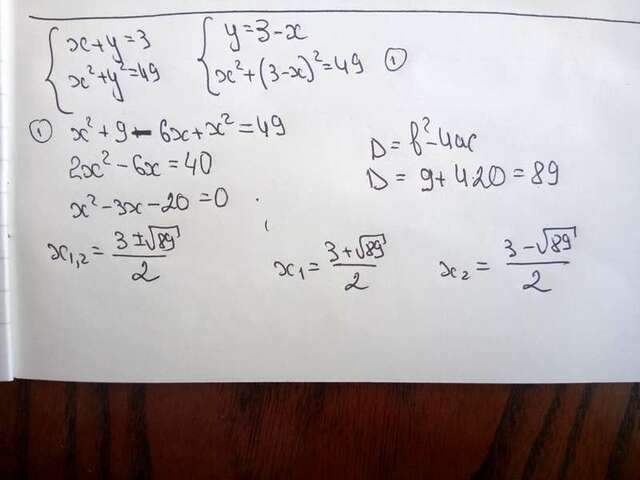 x+y=3
x²+y²=49
y=3-x
x²+(3-x)²=49 ①
① x²+9-6x+x²=49
2x²-6x=40
x²-3x-20=0
D=b²-4ac
D=9+4·20=89
x₁,₂=(3±√89)/2
x₁=(3+√89)/2
x₂=(3-√89)/2